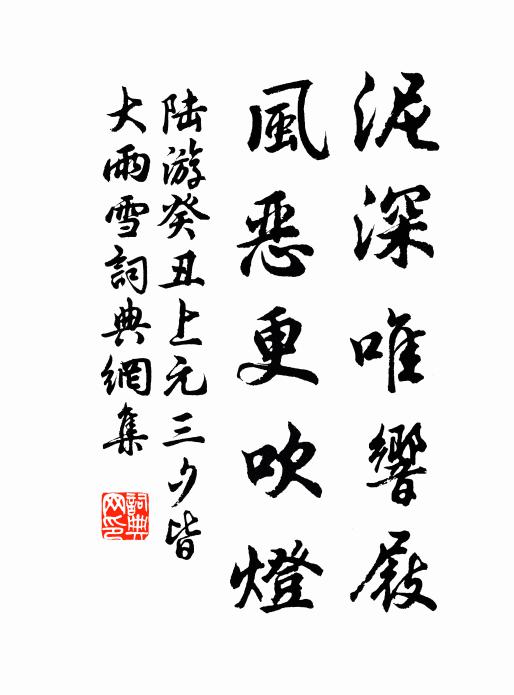 泥深唯響屐
風惡更吹燈
陆游癸丑上元三夕皆
大雨雪詞典網集
詞典
网印